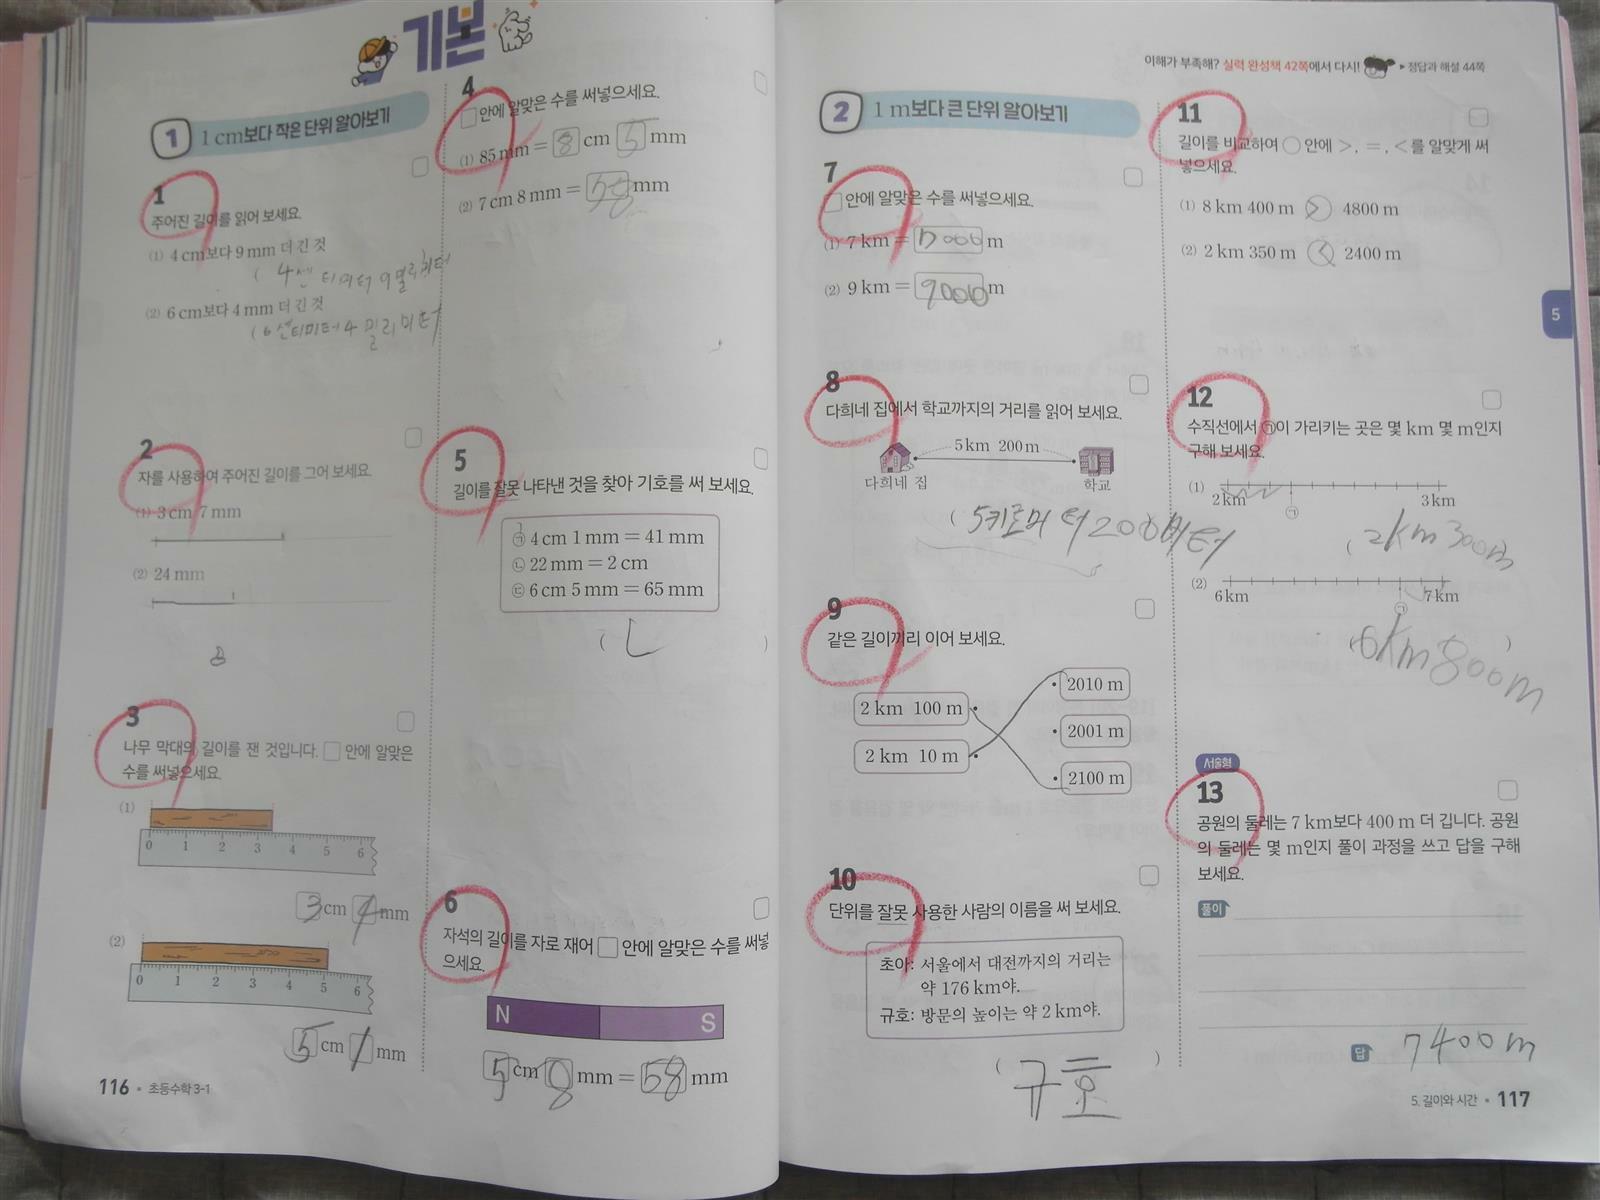 기본
1 1 cm보다 작은 단위 알아보기
1
주어진 길이를 읽어 보세요.
(1) 4 cm보다 9 mm 더 긴 것
( 4센티미터 9밀리미터
(2) 6 cm보다 4 mm 더 긴 것
( 6센티미터 4 밀리미터
2
자를 사용하여 주어진 길이를 그어 보세요.
(1) 3 cm 7 mm
(2) 24 mm
3
나무 막대의 길이를 잰 것입니다. □ 안에 알맞은
수를 써넣으세요.
(1)
0 1 2 3 4 5 6
3 cm 4 mm
(2)
0 1 2 3 4 5 6
5 cm 1 mm
116 • 초등수학 3-1
4
□ 안에 알맞은 수를 써넣으세요.
(1) 85 mm = 8 cm 5 mm
(2) 7 cm 8 mm = 78 mm
5
길이를 잘못 나타낸 것을 찾아 기호를 써 보세요.
㉠ 4 cm 1 mm = 41 mm
㉡ 22 mm = 2 cm
㉢ 6 cm 5 mm = 65 mm
( ㄴ )
6
자석의 길이를 자로 재어 □ 안에 알맞은 수를 써넣
으세요.
N S
5 cm 8 mm = 58 mm
이해가 부족해? 실력 완성책 42쪽에서 다시! ▶ 정답과 해설 44쪽
2 1 m보다 큰 단위 알아보기
7
□ 안에 알맞은 수를 써넣으세요.
(1) 7 km = 7000 m
(2) 9 km = 9000 m
8
다희네 집에서 학교까지의 거리를 읽어 보세요.
5 km 200 m
다희네 집 학교
( 5키로미터 200미터
9
같은 길이끼리 이어 보세요.
2 km 100 m
2 km 10 m
2010 m
2001 m
2100 m
10
단위를 잘못 사용한 사람의 이름을 써 보세요.
초아: 서울에서 대전까지의 거리는
약 176 km야.
규호: 방문의 높이는 약 2 km야.
( 규호 )
11
길이를 비교하여 ○ 안에 >, =, <를 알맞게 써
넣으세요.
(1) 8 km 400 m > 4800 m
(2) 2 km 350 m < 2400 m
5
12
수직선에서 ㉠이 가리키는 곳은 몇 km 몇 m인지
구해 보세요.
(1)
2 km ㉠ 3 km
( 2km 300m
(2)
6 km ㉠ 7 km
( 6km 800m )
서술형
13
공원의 둘레는 7 km보다 400 m 더 깁니다. 공원
의 둘레는 몇 m인지 풀이 과정을 쓰고 답을 구해
보세요.
풀이
답 7400m
5. 길이와 시간 • 117